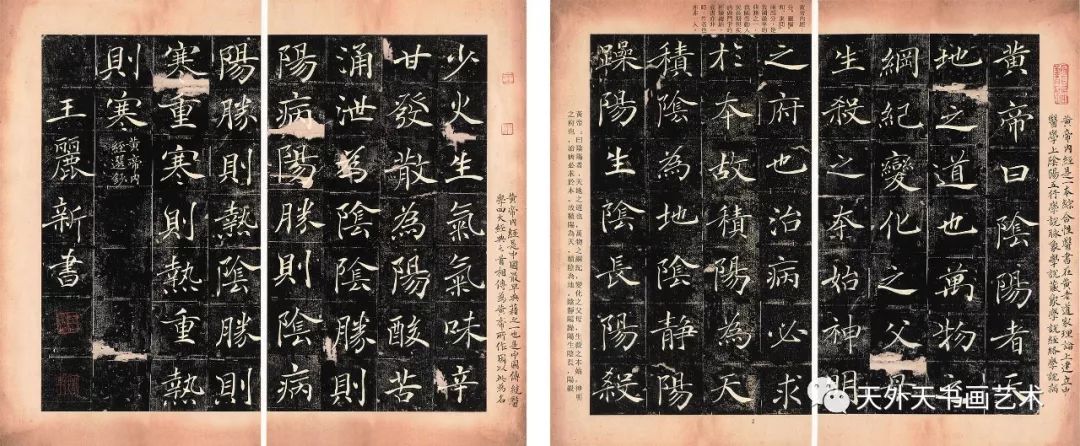 黄帝内經是一本綜合性醫書在黄老道家理論上建立中
醫學上陰陽五行學說脉象學說藏象學說經絡學說病
黄帝曰陰陽者天
地之道也萬物之
綱紀變化之父母
生殺之本始神明
之府也治病必求
於本故積陽為天
積陰為地陰静陽
躁陽生陰長陽殺
黄帝曰陰陽者，天地之道也，萬物之綱紀，變化之父母，生殺之本始，神明
之府也，治病必求於本，故積陽為天，積陰為地，陰靜陽躁，陽生陰長，陽殺
黄帝内經是中國最早典籍之一也是中國傳統醫
學四大經典之首相傳為黄帝所作因以此為名
少火生氣氣味辛
甘發散為陽酸苦
涌泄為陰陰勝則
陽病陽勝則陰病
陽勝則熱陰勝則
寒重寒則熱重熱
則寒
黄帝内
經選鈔
王麗新書
天外天书画艺术